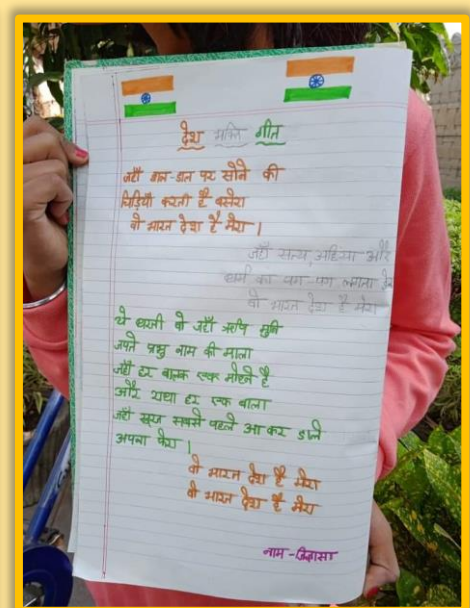 देश भक्ति गीत
जहाँ डाल-डाल पर सोने की
चिड़ियाँ करती है बसेरा
वो भारत देश है मेरा।
जहाँ सत्य, अहिंसा और
धर्म का पग-पग लगता डेरा
वो भारत देश है मेरा
ये धरती वो जहाँ ऋषि मुनि
जपते प्रभु नाम की माला
जहाँ हर बालक एक मोहन है
और राधा हर एक बाला
जहाँ सूरज सबसे पहले आ कर डाले
अपना फेरा।
वो भारत देश है मेरा
वो भारत देश है मेरा
नाम - जिज्ञासा